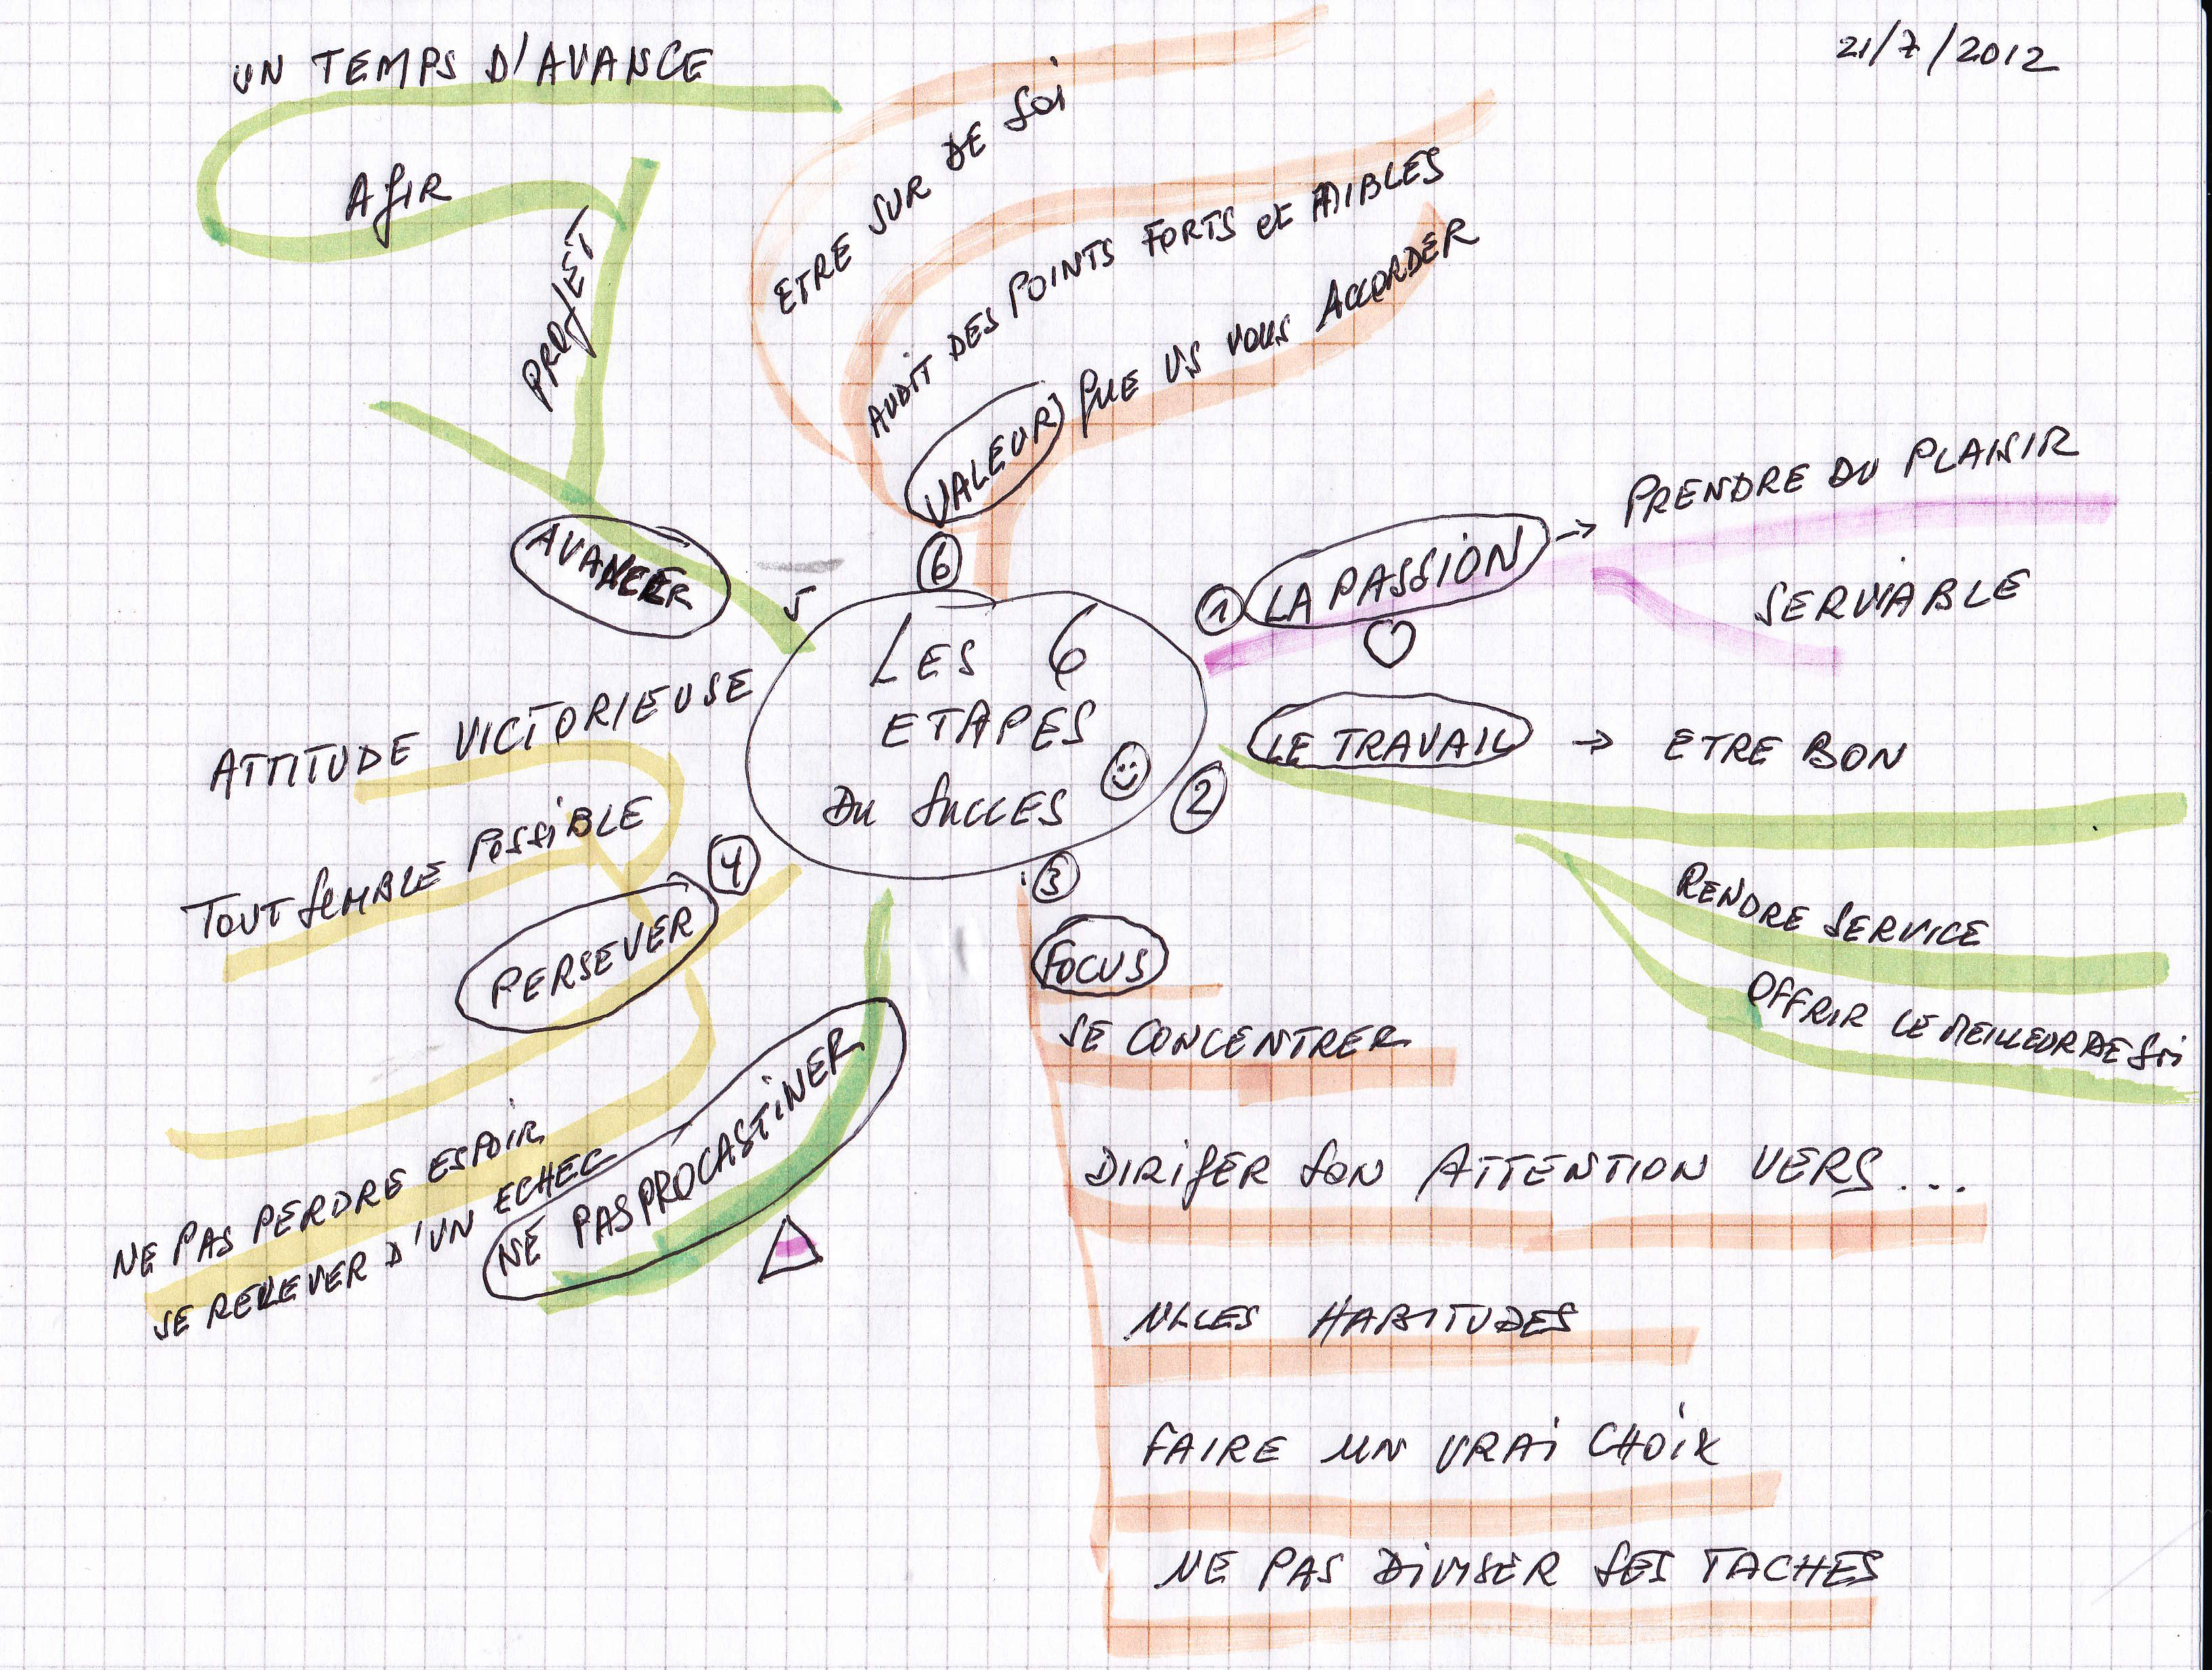 21/7/2012
LES 6
ETAPES
DU SUCCES
1 LA PASSION → PRENDRE DU PLAISIR
SERVIABLE
2
LE TRAVAIL → ETRE BON
RENDRE SERVICE
OFFRIR LE MEILLEUR DE SOI
3
FOCUS
SE CONCENTRER
DIRIGER SON ATTENTION VERS...
NLLES HABITUDES
FAIRE UN VRAI CHOIX
NE PAS DIVISER SES TACHES
NE PAS PROCASTINER
4
PERSEVER
ATTITUDE VICTORIEUSE
TOUT SEMBLE POSSIBLE
NE PAS PERDRE ESPOIR
SE RELEVER D'UN ECHEC
5
AVANCER
PROJET
AGIR
UN TEMPS D'AVANCE
6
VALEUR QUE VS VOUS ACCORDER
AUDIT DES POINTS FORTS et FAIBLES
ETRE SUR DE SOI